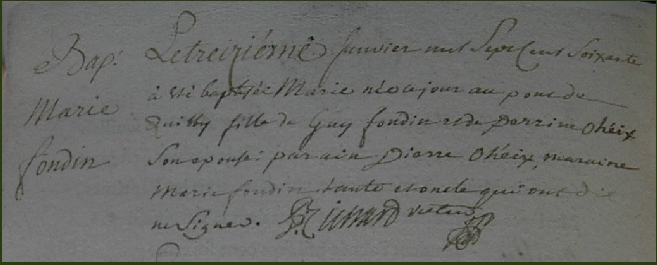 Bap.
Marie
fondin
Le treiziéme Janvier mil Sept Cent Soixante
à été baptisée Marie née ce jour au pont de
quilly fille de Guy fondin et de Perrine Oheix
Son epouse: parain Pierre Oheix, maraine
Marie fondin tante et oncle qui ont dit
ne Signer.